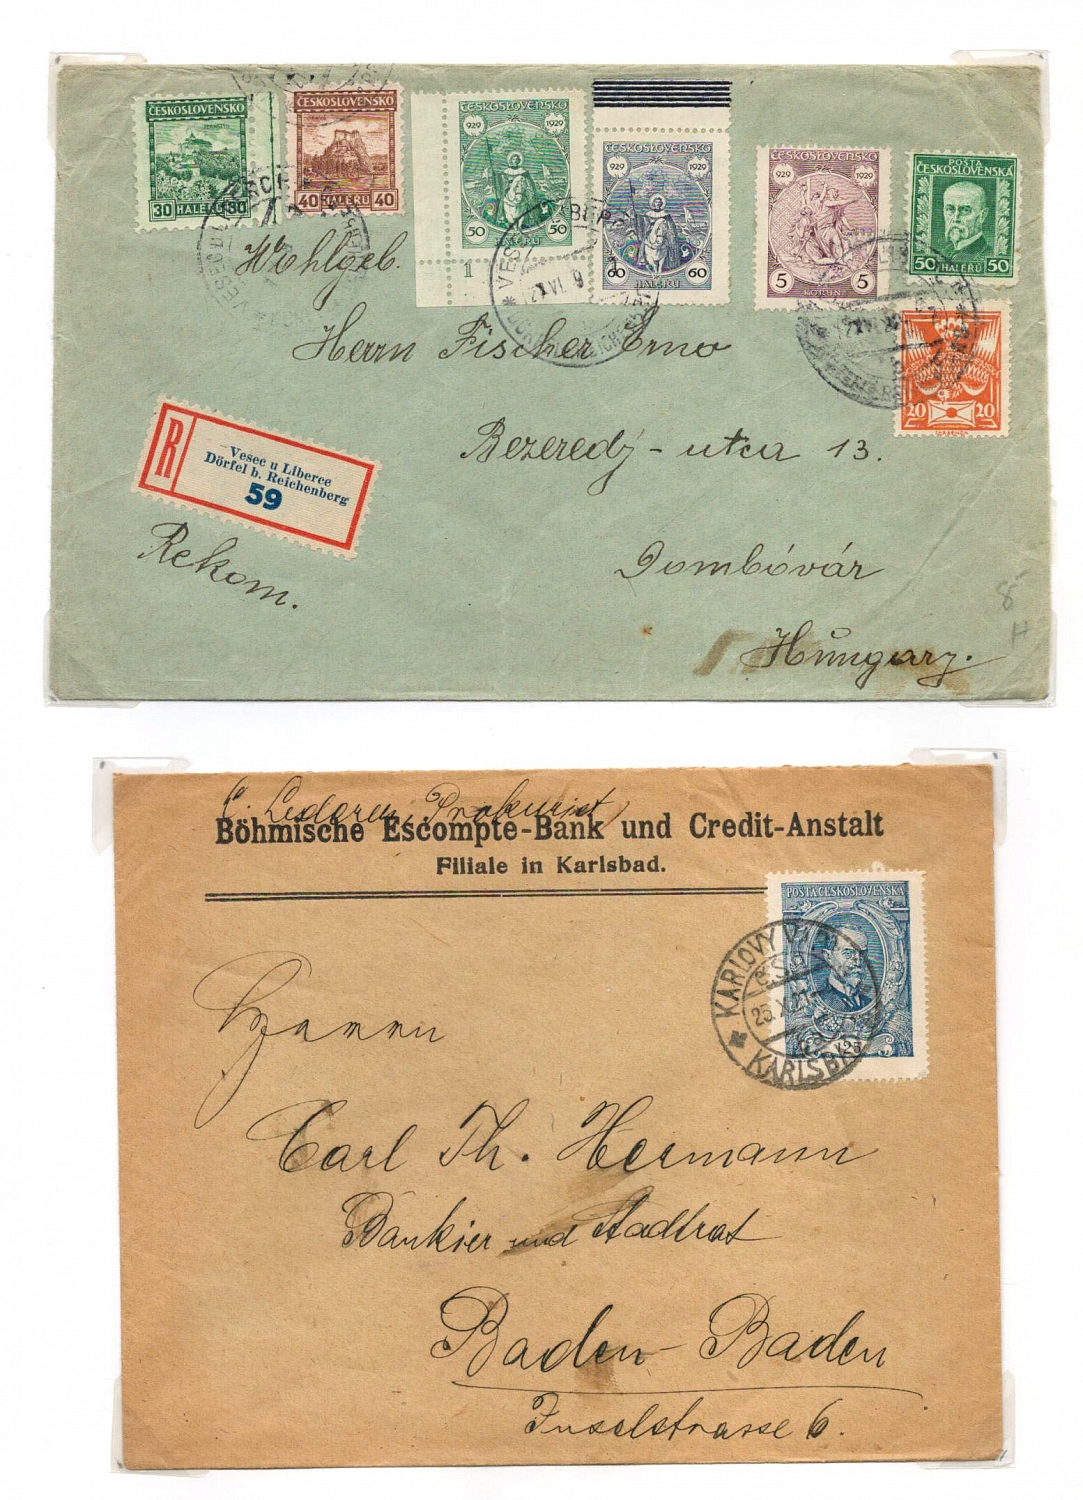 ČESKOSLOVENSKO
30 HALÉŘŮ 30
ČESKOSLOVENSKO
40 HALÉŘŮ 40
ČESKOSLOVENSKO
929 1929
50 50
HALÉŘŮ
1
ČESKOSLOVENSKO
929 1929
60 60
HALÉŘŮ
ČESKOSLOVENSKO
929 1929
5 5
KORUN
POŠTA
ČESKOSLOVENSKÁ
50 HALÉŘŮ 50
20 20
Wohlgeb.
Herrn Fischer Erno
Bezeredj-utca 13.
Dombóvár
Hungary.
R
Vesec u Liberce
Dörfel b. Reichenberg
59
Rekom.
8
H
C. Lederer, Prokurist
Böhmische Escompte-Bank und Credit-Anstalt
Filiale in Karlsbad.
POSTA ČESKOSLOVENSKÁ
125
KARLOVY
ČSP
25.X.21
KARLSBAD
Herrn
Carl Th. Hermann
Bankier und Stadtrat
Baden-Baden
Inselstrasse 6.